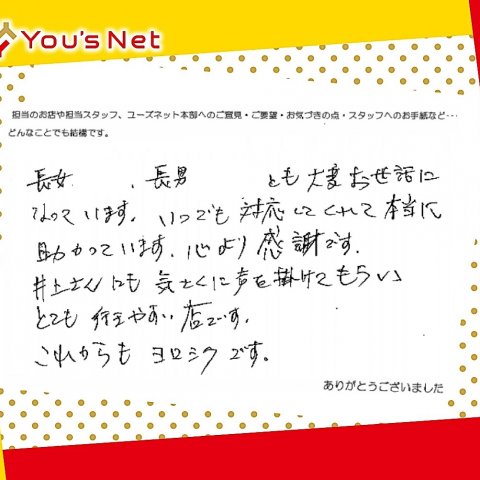 You's Net
担当のお店や担当スタッフ、ユーズネット本部へのご意見・ご要望・お気づきの点・スタッフへのお手紙など…
どんなことでも結構です。
長女　、長男　とも大変お世話に
なっています。いつでも対応してくれて本当に
助かっています。心より感謝です。
井上さんにも気さくに声を掛けてもらい
とても行きやすい店です。
これからもヨロシクです。
ありがとうございました